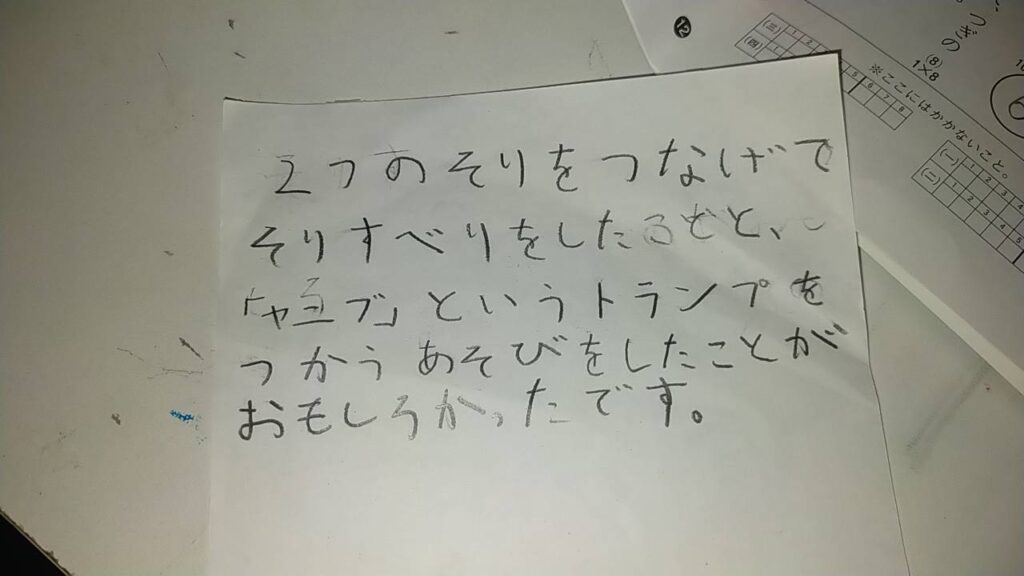 2つのそりをつなげて
そりすべりをしたことと、
「ヤニブ」というトランプを
つかうあそびをしたことが
おもしろかったです。
⑫
つぎの
(8)
1×8
※ここにはかかないこと。
(一) 1 2 3 4
(二) 1 2 3 4 5
(三) 1 2
(四)